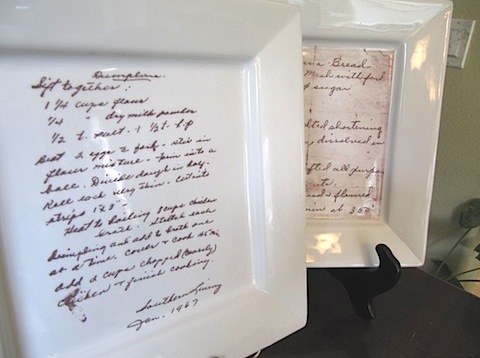 Dumplins
Sift together:
1 1/4 cups flour
1/4 dry milk powder
1/2 t. salt - 1 1/2 t. b.p
Beat 2 eggs & fork - Stir in
flour mixture - form into a
ball. Divide dough in half.
Roll each very thin - Cut into
strips 1 x
Heat to boiling cups chicken
broth. Stretch each
dumpling and add to broth one
at a time. Cover & cook
add 2 cups chopped
chicken & finish cooking.
Southern Living
Jan. 1967
Bread
Mash with fork
sugar
shortening
dissolved in
all purpose
floured
min at 350